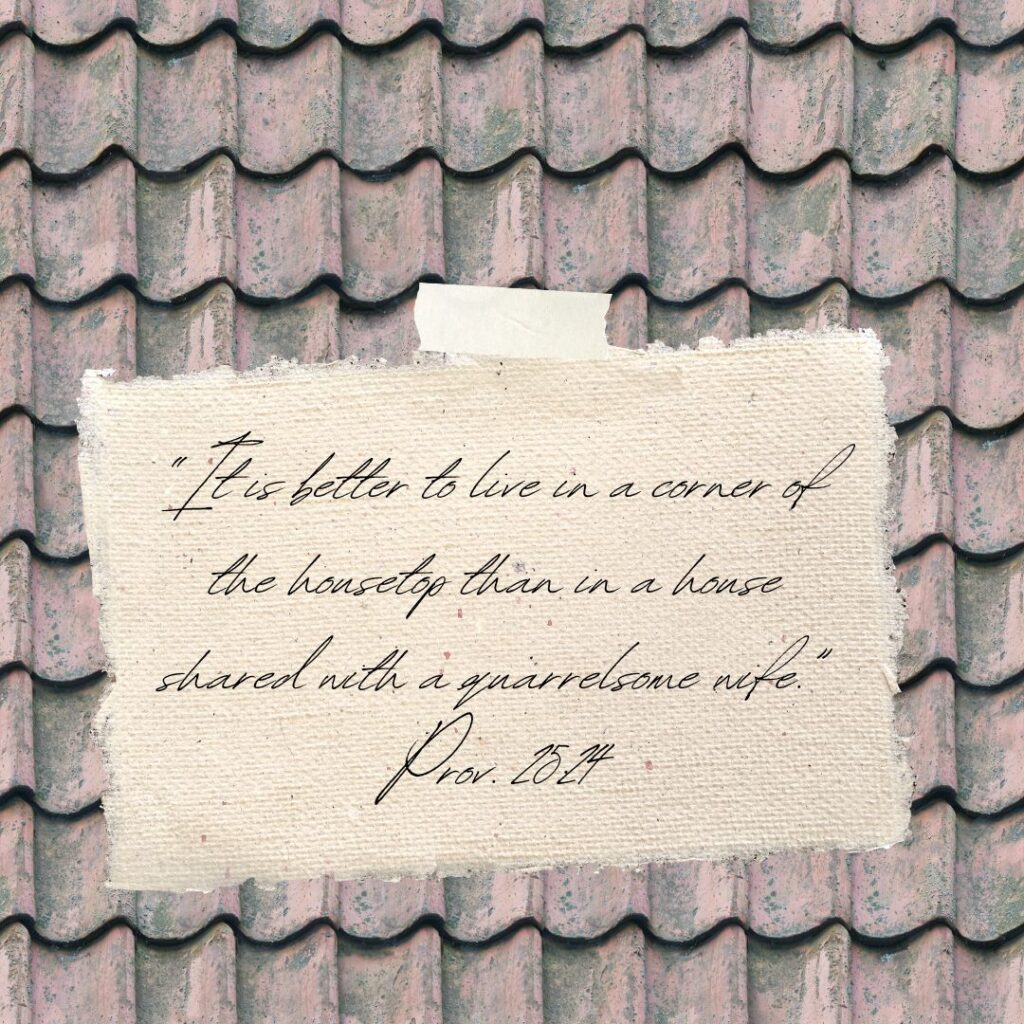 "It is better to live in a corner of
the housetop than in a house
shared with a quarrelsome wife."
Prov. 25:24